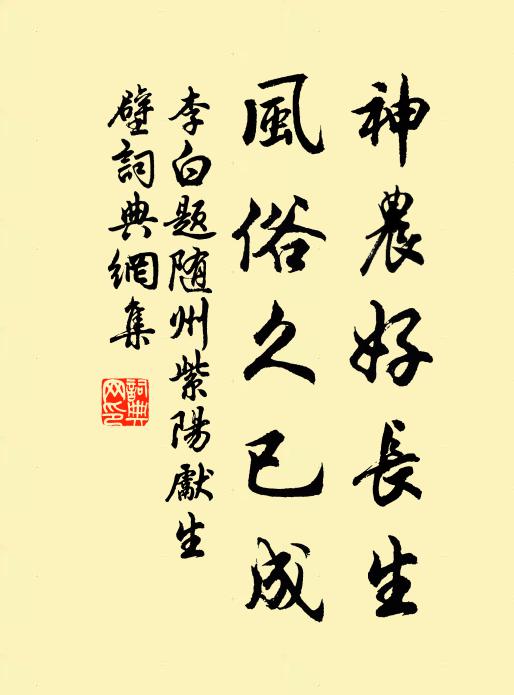 神農好長生
風俗久已成
李白题随州紫陽獻生
壁詞典網集
詞典网印